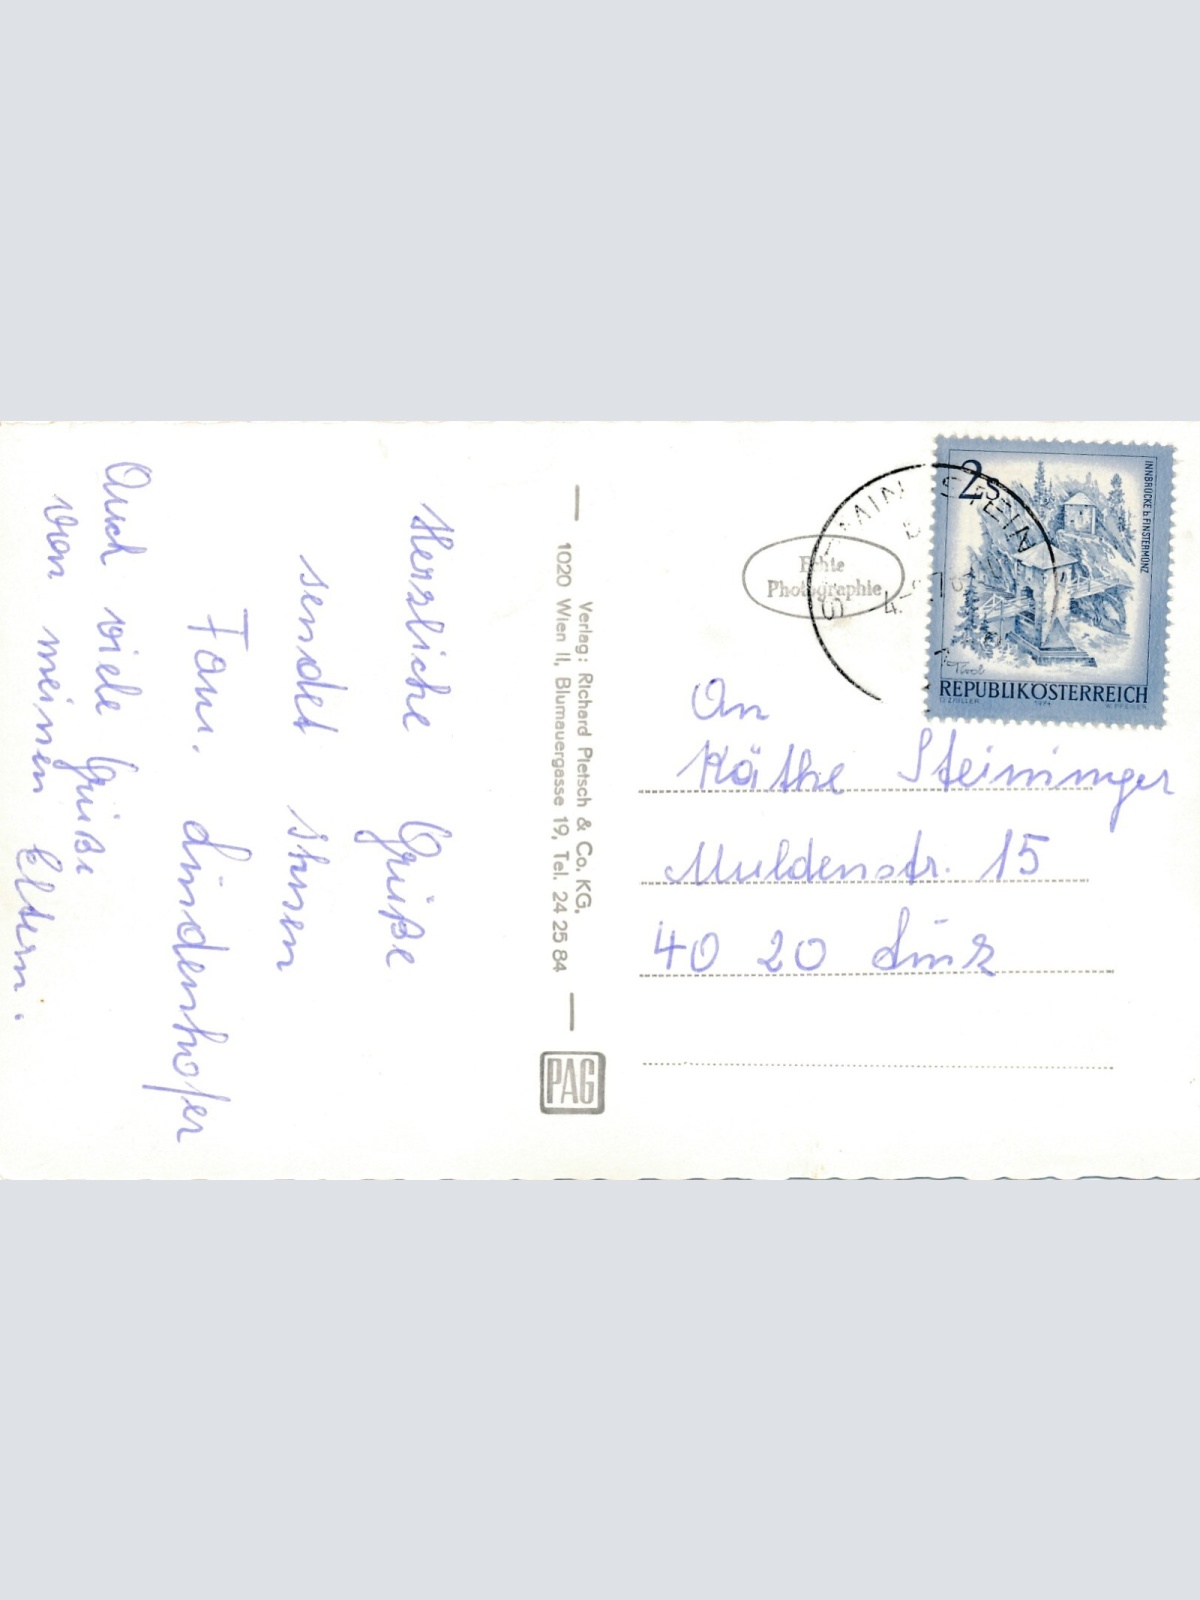 Herzliche Grüße
sendet Ihnen
Fam. Lindenhofer
Auch viele Grüße
von meinen Eltern.
Verlag: Richard Pietsch & Co. KG,
1020 Wien II, Blumauergasse 19, Tel. 24 25 84
PAG
Echte
Photographie
2S
INNBRÜCKE b. FINSTERMÜNZ
Tirol
REPUBLIK ÖSTERREICH
1974
An
Käthe Steininger
Muldenstr. 15
40 20 Linz